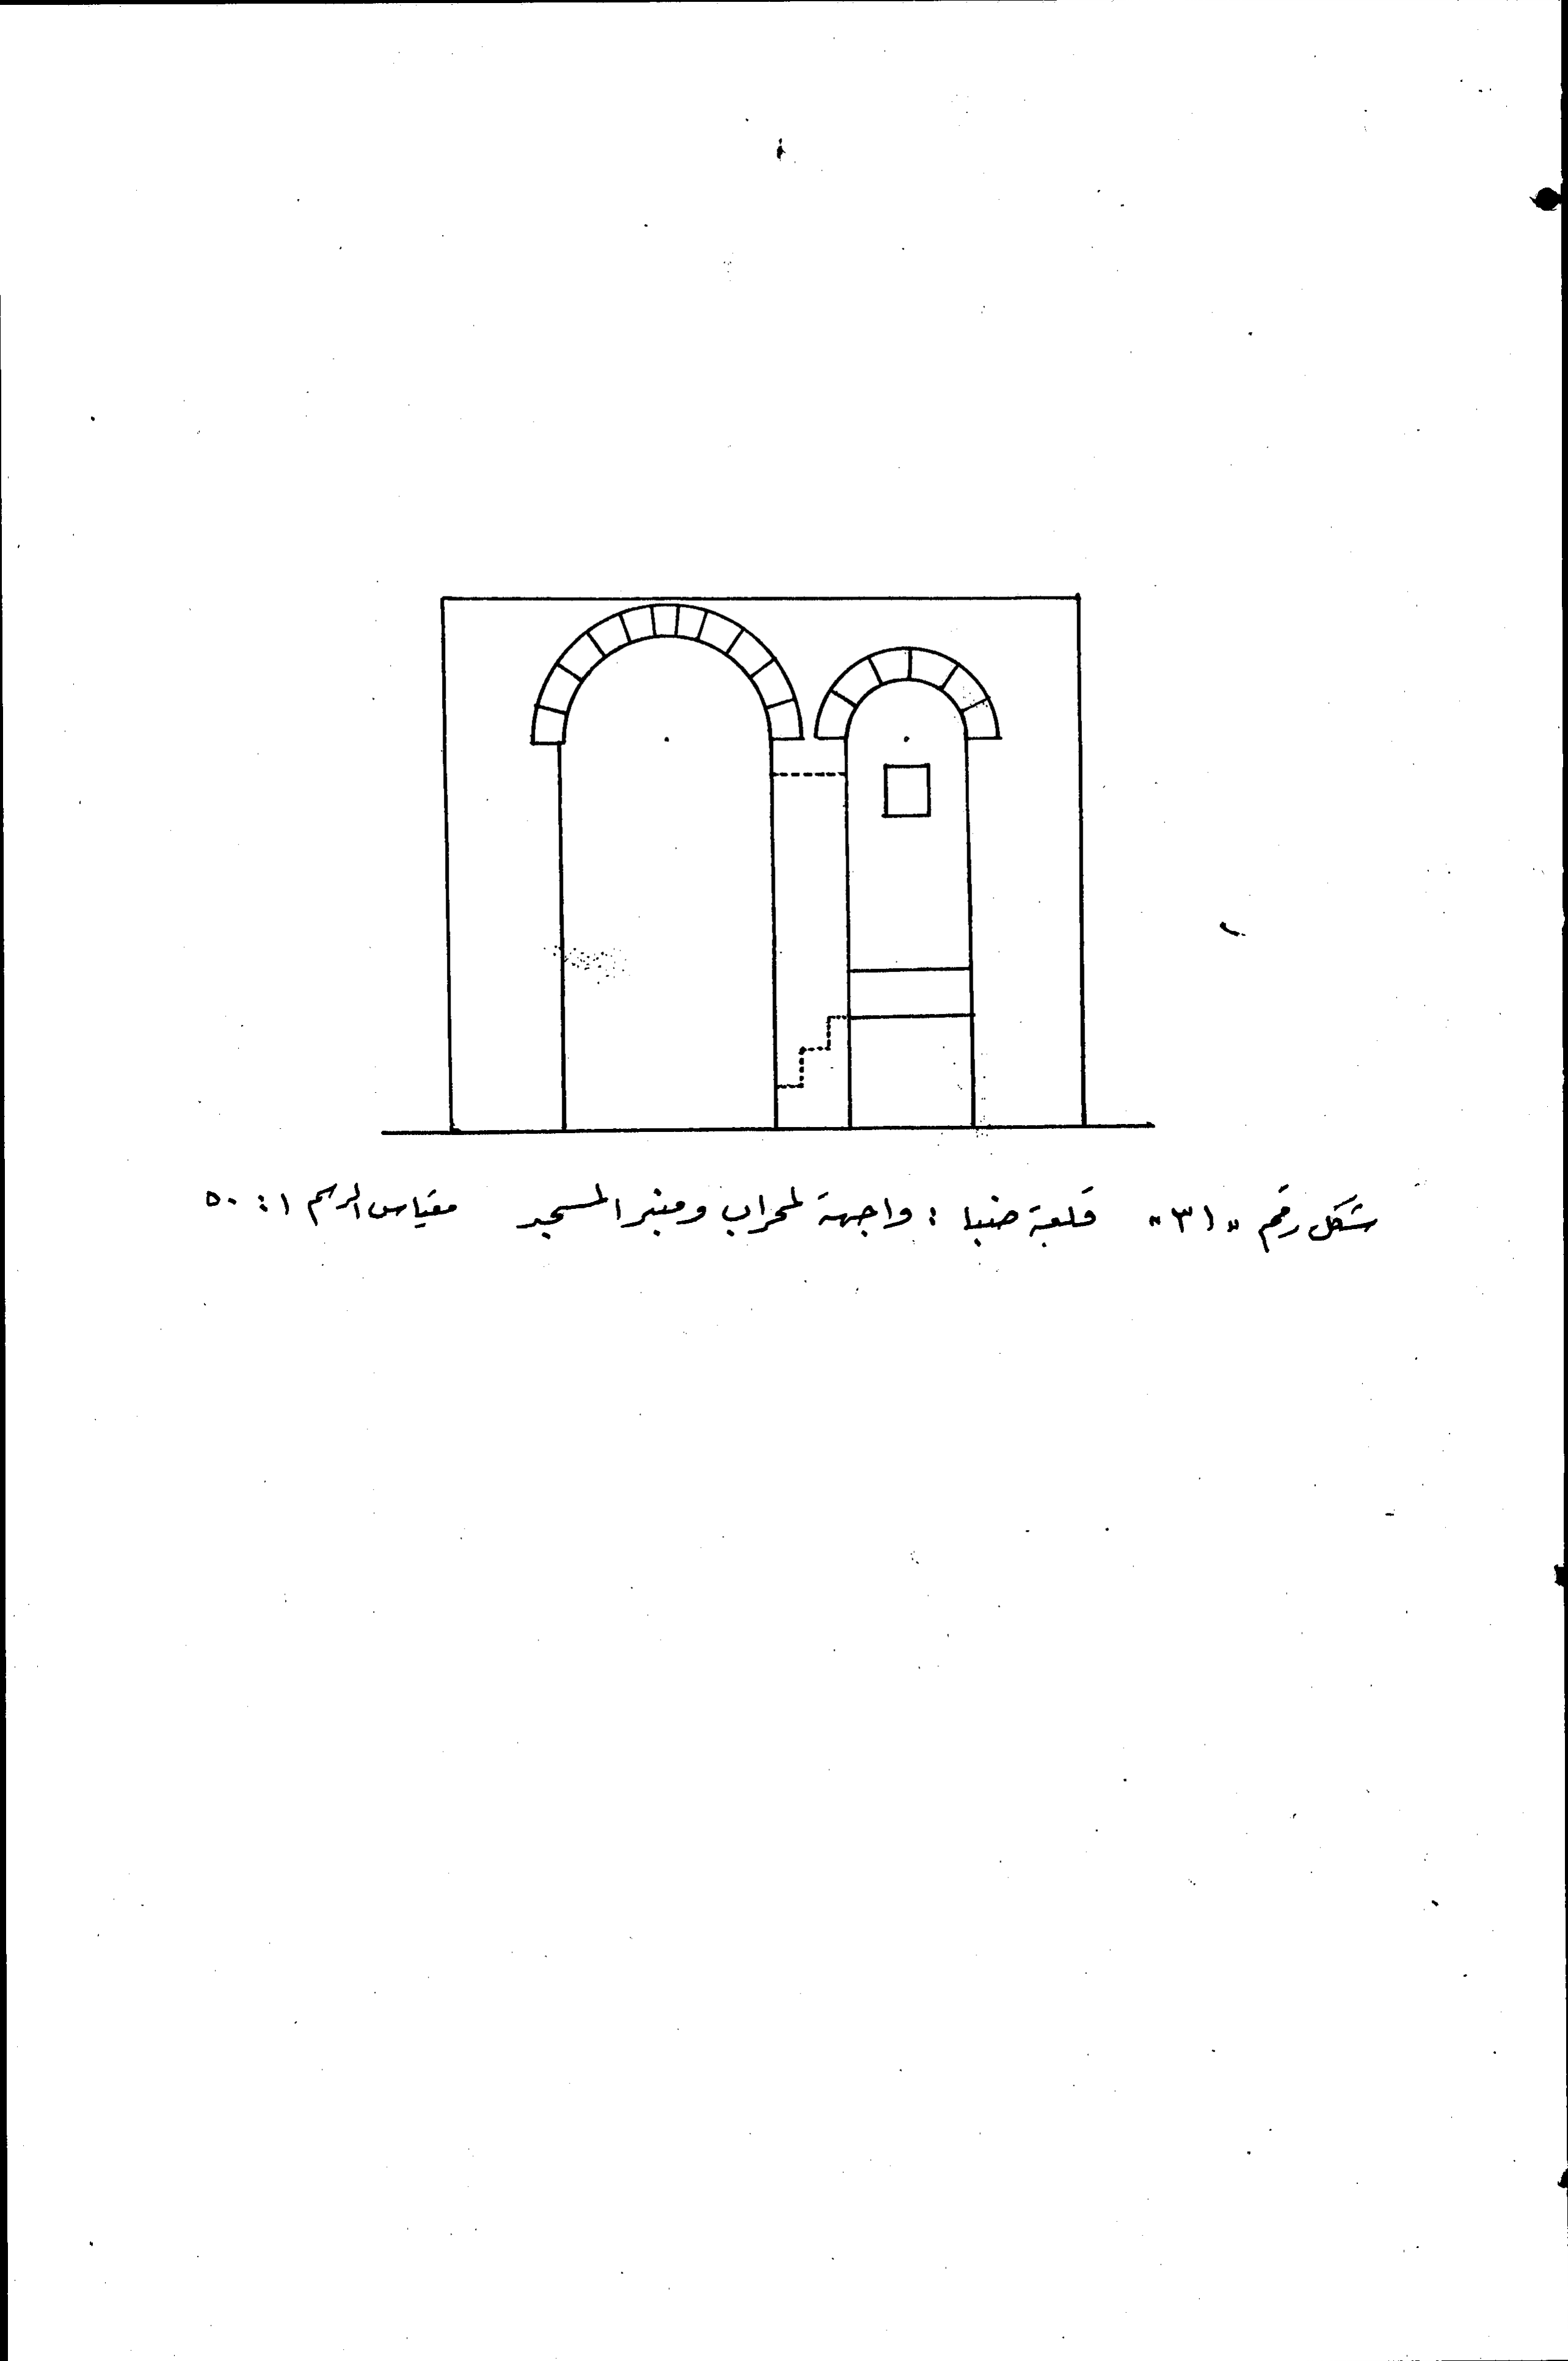 شكل رقم «٣١» قلعة ضبا : واجهة لمحراب ومنبر المسجد مقياس الرسم ١ : ٥٠